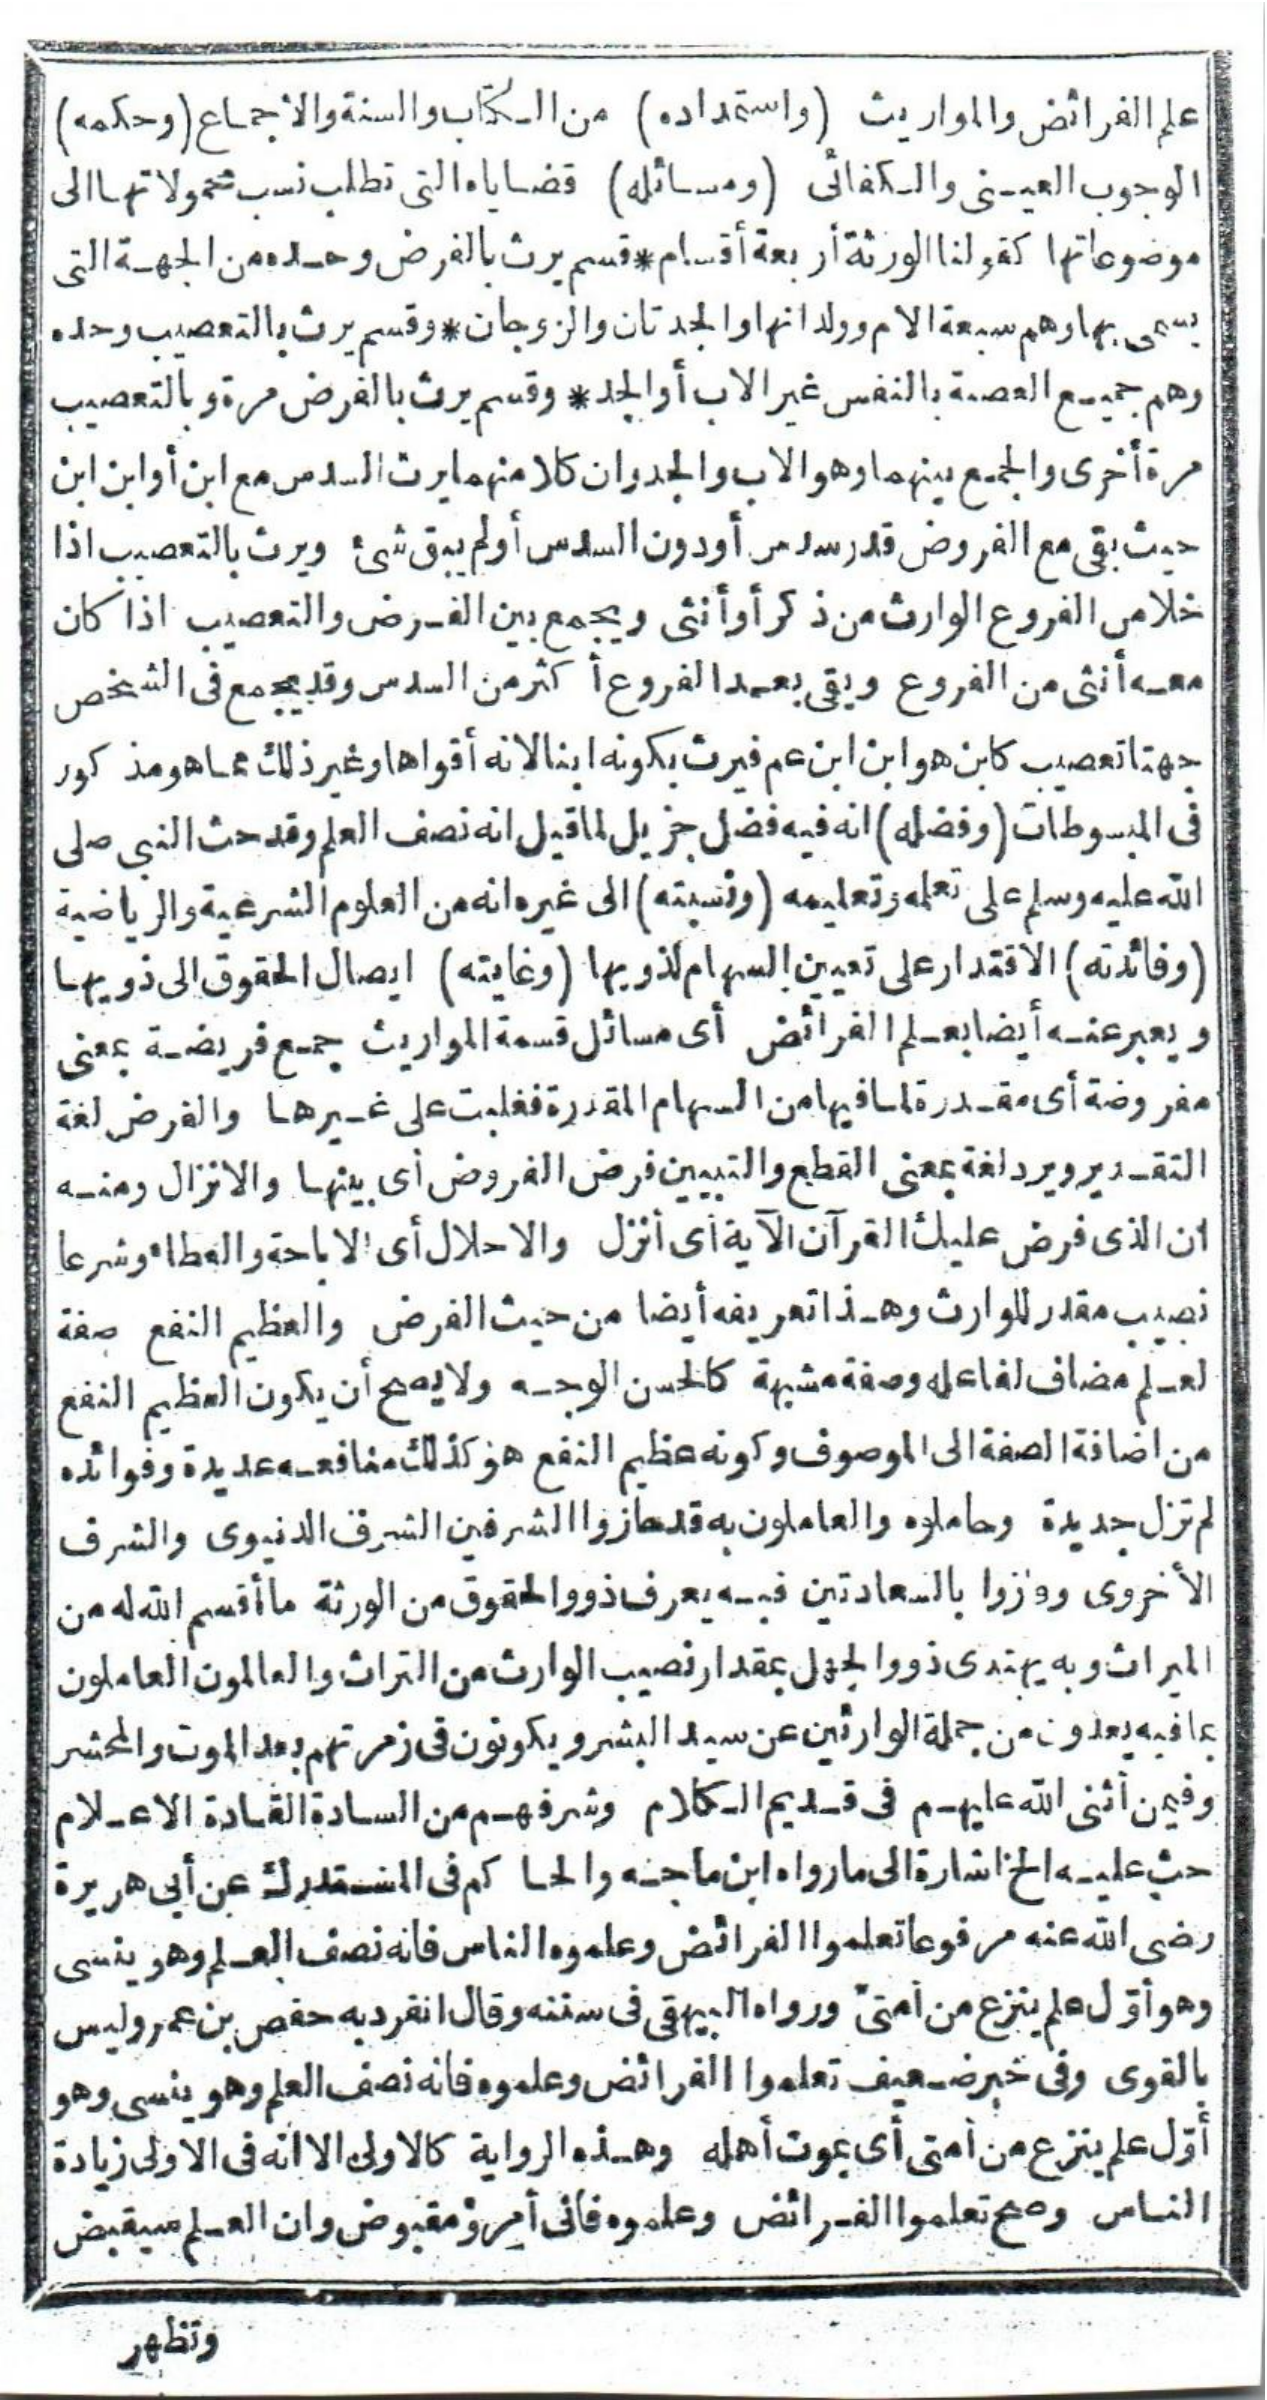 علم الفرائض والمواريث (واستمداده) من الكتاب والسنة والاجماع (وحكمه)
الوجوب العينى والكفائى (ومسائله) قضاياه التى تطلب نسب محمولاتها الى
موضوعاتها كقولنا الورثة أربعة أقسام * قسم يرث بالفرض وحده من الجهة التى
يسمى بها وهم سبعة الام وولداتها والجدتان والزوجان * وقسم يرث بالتعصيب وحده
وهم جميع العصبة بالنفس غير الاب أو الجد * وقسم يرث بالفرض مرة وبالتعصيب
مرة أخرى والجمع بينهما وهو الاب والجد وان كلا منهما يرث السدس مع ابن أو ابن ابن
حيث بقى مع الفروض قدر سدس أو دون السدس أو لم يبق شئ ويرث بالتعصيب اذا
خلا من الفروع الوارث من ذكر أو أنثى ويجمع بين الفرض والتعصيب اذا كان
معه أنثى من الفروع وبقى بعد الفروع أكثر من السدس وقد يجمع فى الشخص
جهتا تعصيب كابن هو ابن ابن عم فيرث بكونه ابنا لانه أقواها وغير ذلك مما هو مذكور
فى المبسوطات (وفضله) انه فيه فضل جزيل لما قيل انه نصف العلم وقد حث النبى صلى
الله عليه وسلم على تعلمه وتعليمه (ونسبته) الى غيره انه من العلوم الشرعية والرياضية
(وفائدته) الاقتدار على تعيين السهام لذويها (وغايته) ايصال الحقوق الى ذويها
ويعبر عنه أيضا بعلم الفرائض أى مسائل قسمة المواريث جمع فريضة بمعنى
مفروضة أى مقدرة لما فيها من السهام المقدرة فغلبت على غيرها والفرض لغة
التقدير ويرد لغة بمعنى القطع والتبيين فرض الفروض أى بينها والانزال ومنه
ان الذى فرض عليك القرآن الآية أى أنزل والاحلال أى الاباحة والعطاء وشرعا
نصيب مقدر للوارث وهذا تعريفه أيضا من حيث الفرض والعظيم النفع صفة
لعلم مضاف لفاعله وصفة مشبهة كالحسن الوجه ولا يصح أن يكون العظيم النفع
من اضافة الصفة الى الموصوف وكونه عظيم النفع هو كذلك منافعه عديدة وفوائده
لم تزل جديدة وحاملوه والعاملون به قد حازوا الشرفين الشرف الدنيوى والشرف
الأخروى وفازوا بالسعادتين فبه يعرف ذووا الحقوق من الورثة ما أقسم الله له من
الميراث وبه يهتدى ذووا الجهل بمقدار نصيب الوارث من التراث والعالمون العاملون
بما فيه يعدون من جملة الوارثين عن سيد البشر ويكونون فى زمرتهم بعد الموت والمحشر
وفيمن أثنى الله عليهم فى قديم الكلام وشرفهم من السادة القادة الاعلام
حث عليه الخ اشارة الى مارواه ابن ماجه والحاكم فى المستدرك عن أبى هريرة
رضى الله عنه مرفوعا تعلموا الفرائض وعلموه الناس فانه نصف العلم وهو ينسى
وهو أول علم ينزع من أمتى ورواه البيهقى فى سننه وقال انفرد به حفص بن عمر وليس
بالقوى وفى خبر ضعيف تعلموا الفرائض وعلموه فانه نصف العلم وهو ينسى وهو
أول علم ينزع من أمتى أى بموت أهله وهذه الرواية كالاولى الا انه فى الاولى زيادة
الناس وصح تعلموا الفرائض وعلموه فانى أمرؤ مقبوض وان العلم سيقبض
وتظهر